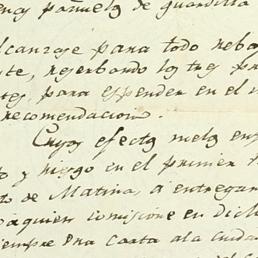 pañuelos de guardilla
alcanzase para todo reba
te, reserbando los tres pr
tes, para espender en el m
recomendacion.
Cuyos efectos me los en
to y riesgo en el primer
to de Matina, a entregar
o aquien comisione en dich
siempre una carta ala ciuda